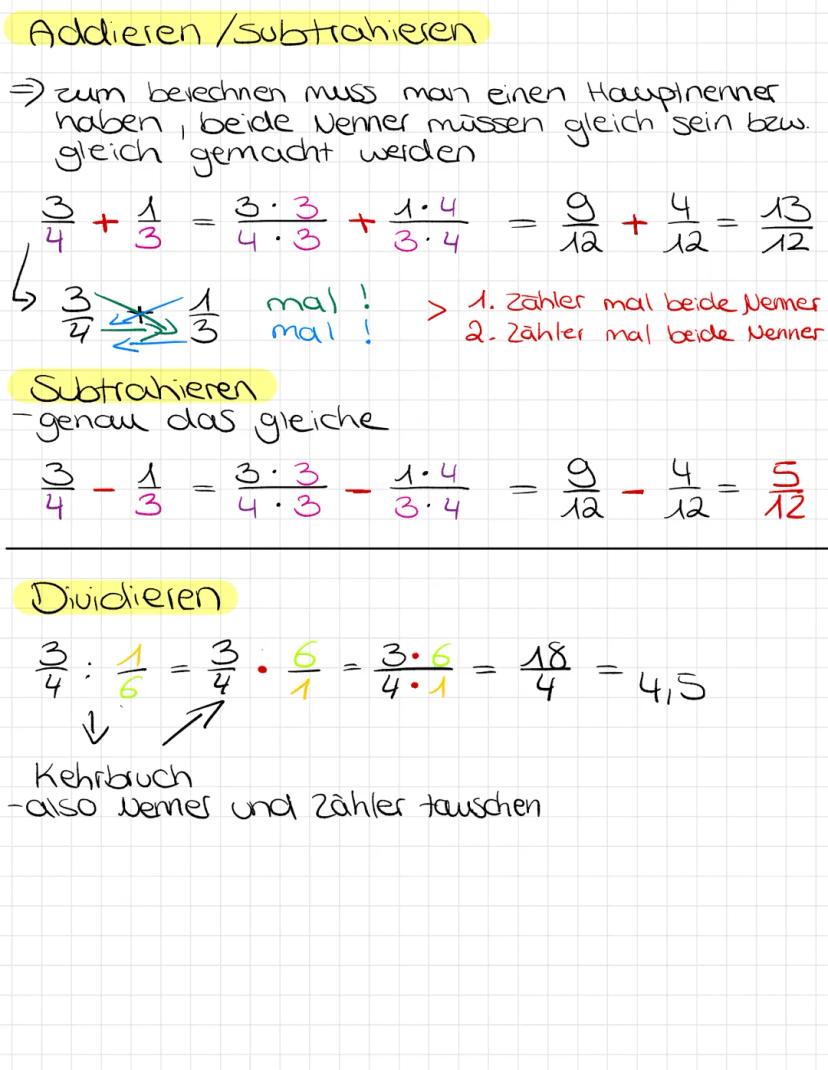 Addieren / subtrahieren
⇒ zum berechnen muss man einen Hauptnenner
haben, beide Nenner müssen gleich sein bzw.
gleich gemacht werden
3/4 + 1/3 = 3·3/4·3 + 1·4/3·4 = 9/12 + 4/12 = 13/12
3/4 + 1/3 mal! > 1. Zähler mal beide Nenner
mal! 2. Zähler mal beide Nenner
Subtrahieren
- genau das gleiche
3/4 - 1/3 = 3·3/4·3 - 1·4/3·4 = 9/12 - 4/12 = 5/12
Dividieren
3/4 : 1/6 = 3/4 · 6/1 = 3·6/4·1 = 18/4 = 4,5
Kehrbruch
- also Nenner und Zähler tauschen